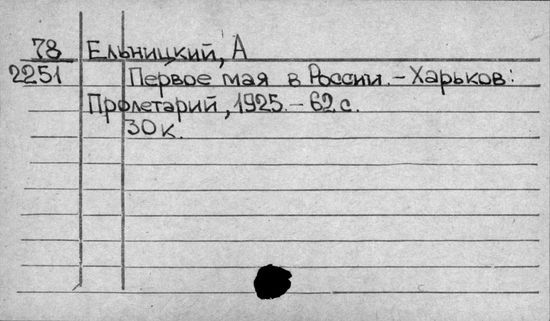 78 Ельницкий, А
2251 Первое мая в России. – Харьков:
Пролетарий, 1925. – 62 с.
30 к.